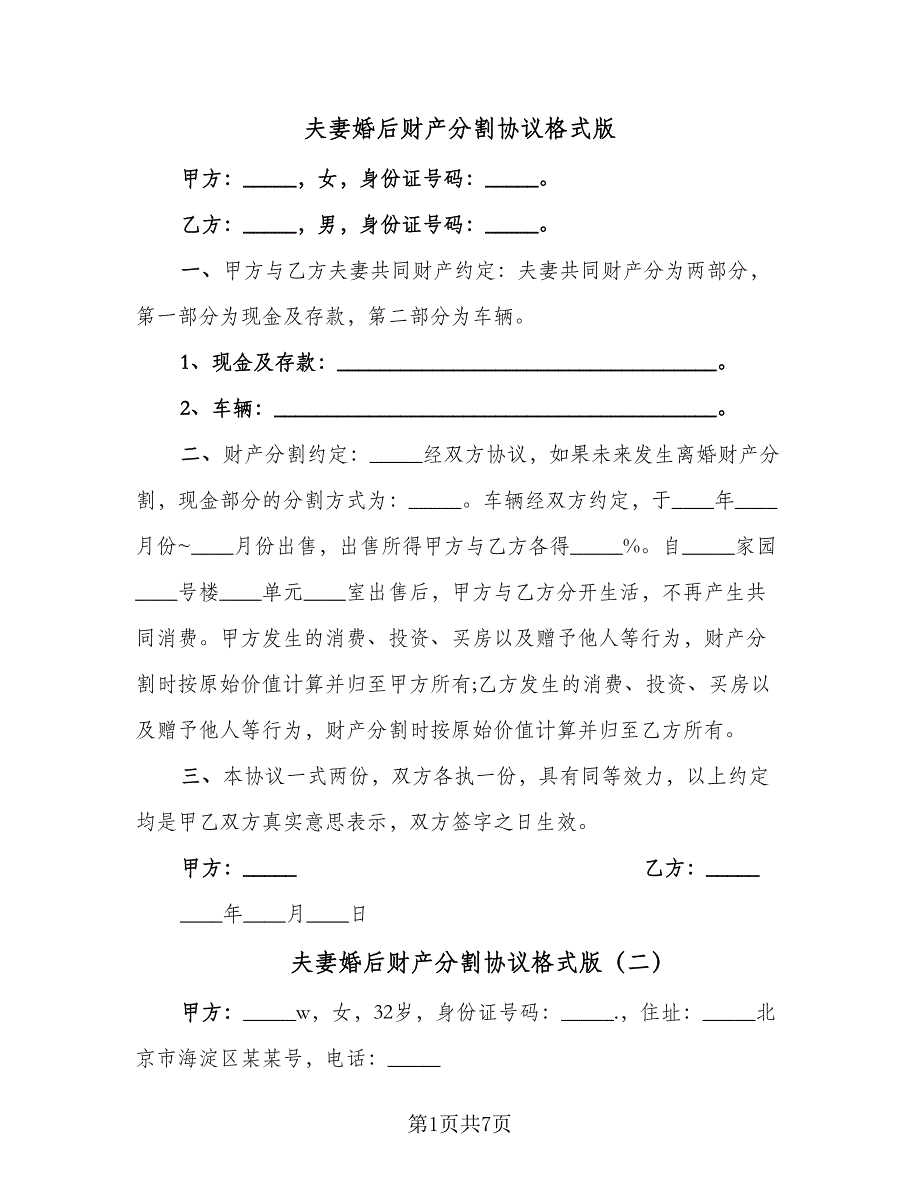 夫妻婚后财产分割协议格式版
甲方：_____，女，身份证号码：_____。
乙方：_____，男，身份证号码：_____。
一、甲方与乙方夫妻共同财产约定：夫妻共同财产分为两部分，
第一部分为现金及存款，第二部分为车辆。
1、现金及存款：____________________________________。
2、车辆：__________________________________________。
二、财产分割约定：_____经双方协议，如果未来发生离婚财产分
割，现金部分的分割方式为：_____。车辆经双方约定，于____年____
月份~____月份出售，出售所得甲方与乙方各得_____%。自_____家园
____号楼____单元____室出售后，甲方与乙方分开生活，不再产生共
同消费。甲方发生的消费、投资、买房以及赠予他人等行为，财产分
割时按原始价值计算并归至甲方所有;乙方发生的消费、投资、买房以
及赠予他人等行为，财产分割时按原始价值计算并归至乙方所有。
三、本协议一式两份，双方各执一份，具有同等效力，以上约定
均是甲乙双方真实意思表示，双方签字之日生效。
甲方：_____ 乙方：_____
____年____月____日
夫妻婚后财产分割协议格式版（二）
甲方：_____w，女，32岁，身份证号码：_____.，住址：_____北
京市海淀区某某号，电话：_____
第1页共7页